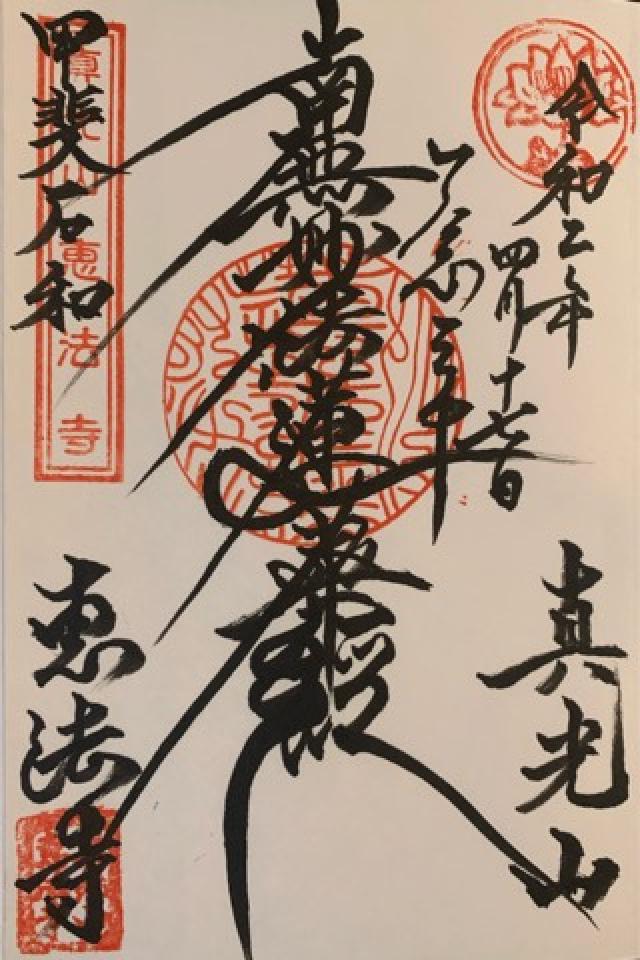 令和二年
四月十七日
真光山
一念三千
南無妙法蓮華経
甲斐石和
恵法寺
眞光山恵法寺